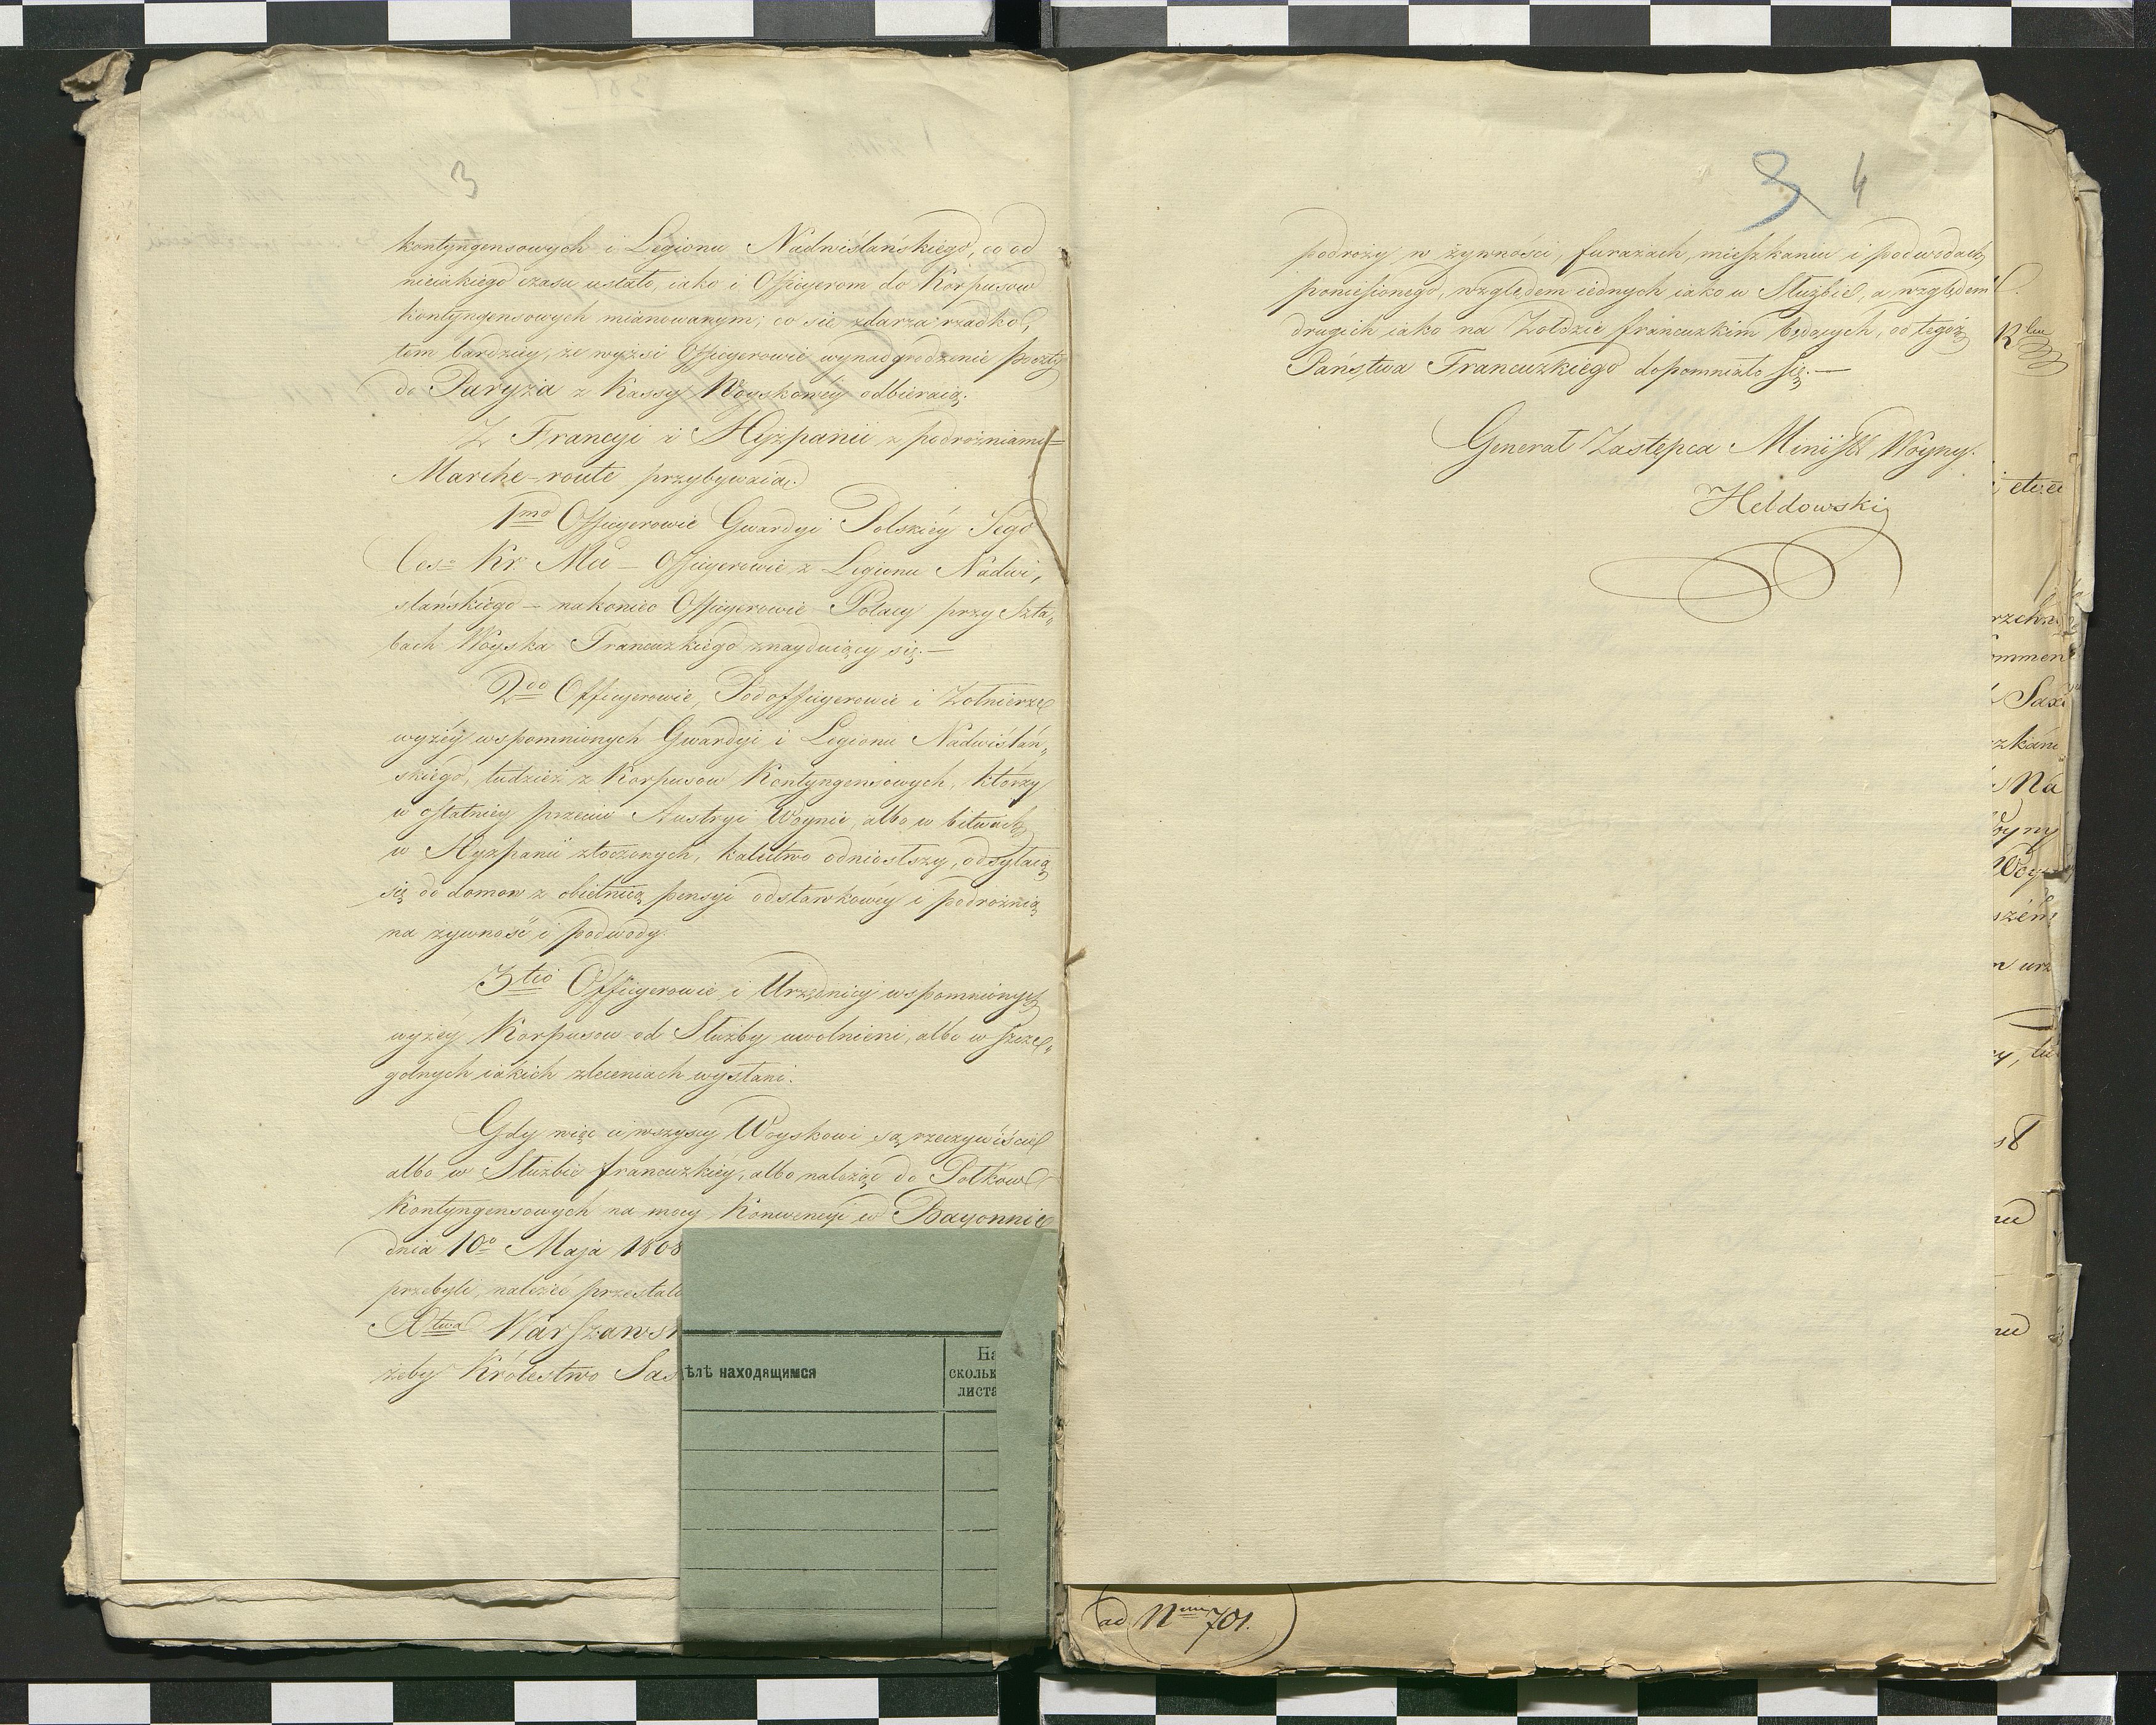 3
kontyngensowych i Legionu Nadwiślańskiego, co od
nieiakiego czasu ustało, iako i Officyerom do Korpusow
kontyngensowych mianowanym; co się zdarza rzadko,
tem bardziey, że wyżsi Officyerowie wynadgrodzenie poczty
do Paryża z Kassy Woyskowéy odbieraią.
Z Francyi i Hyzpanii z podróżniami=
Marche-route przybywaią
1mo Officyerowie Gwardyi Polskiéy Jego
Ces= Kr. Mci — Officyerowie z Legionu Nadwi„
slańskiego — nakoniec Officyerowie Polacy przy Szta„
bach Woyska Francuzkiego znayduiący się. —
2do Officyerowie, Podofficyerowie i Żołnierze
wyżéy wspomnionych Gwardyi i Legionu Nadwiślań„
skiego, tudzież z Korpusow Kontyngensowych, którzy
w ostatniéy przeciw Austryi Woynie albo w bitwach
w Hyzpanii złoczonych, kalectwo odniosłszy, odsyłaią
się do domow z obietnicą pensyi odstawkowéy i podrożnią
na żywność i podwody.
3tio Officyerowie i Urzędnicy wspomnionych
wyżéy Korpusow od Służby uwolnieni, albo w szcze„
golnych iakich zleceniach wysłani.
Gdy więc ci wszyscy Woyskowi są rzeczywiście
albo w Służbie francuzkiéy, albo należąc do Półkow
Kontyngensowych na mocy Konwencyi w Bayonnie
dnia 10o Maja 1808
przebyli, należeć przestali
Xtwa Warszawsk
żeby Królestwo Sas
ѣлѣ находящимся
На
скольк
листа
3 4
podroży w żywności, furażach, mieszkaniu i podwodach
poniesionego, względem iednych iako w Służbie, a względem
drugich iako na Żołdzie francuzkim będących, od tegoż
Państwa Francuzkiego dopomniało się. —
Generał Zastępca Ministra Woyny.
Hebdowski
ad Num 701.